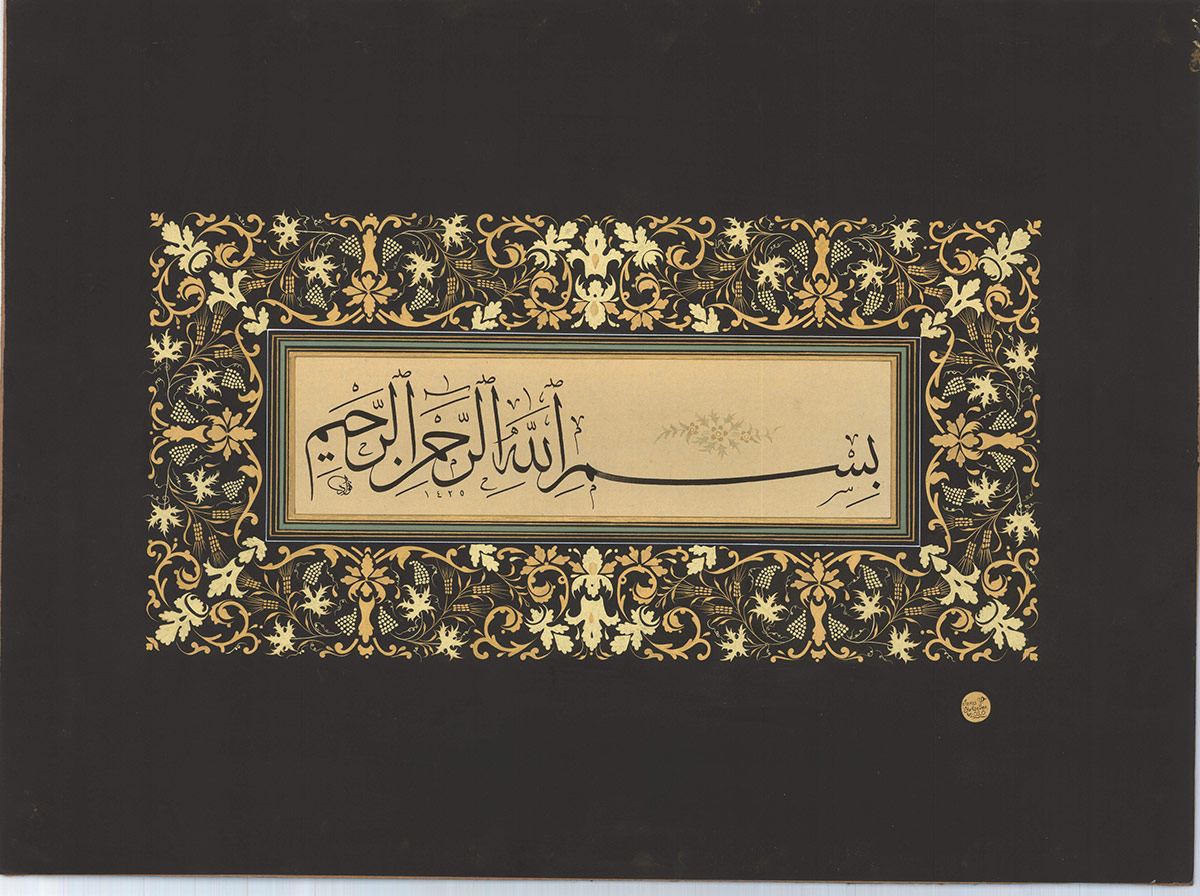 بِسْمِ اللَّهِ الرَّحْمٰنِ الرَّحِيمِ
١٤٢٥